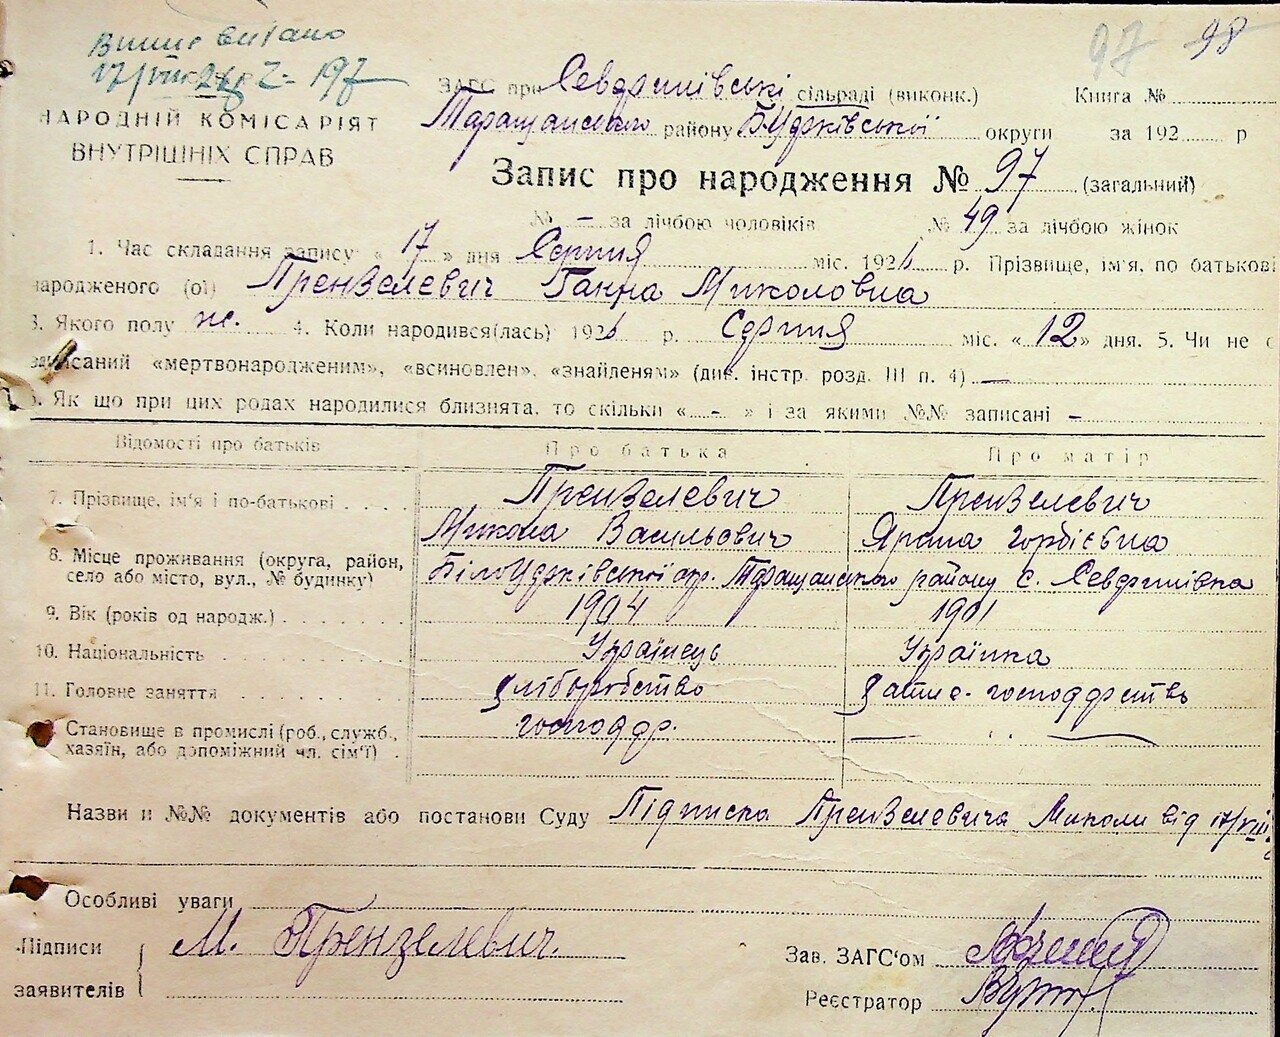 97 98
НАРОДНІЙ КОМІСАРІЯТ
ВНУТРІШНІХ СПРАВ
ЗАГС при сільраді (виконк.) Книга №
Таращанського району Б Церківської округи за 192 р
Запис про народження № 97 (загальний)
№ – за лічбою чоловіків № 49 за лічбою жінок
1. Час складання запису « 17 » дня Серпня міс. 1926 р. Прізвище, ім'я, по батькові
народженого (ої) Прензелевич Ганна Миколовна
3. Якого полу ж. 4. Коли народився(лась) 1926 р. Серпня міс. « 12 » дня. 5. Чи не є
записаний «мертвонародженим», «всиновлен», «знайденям» (див. інстр. розд. III п. 4) —
6. Як що при цих родах народилися близнята, то скільки « - » і за якими №№ записані –
Відомості про батьків Про батька Про матір
7. Прізвище, ім'я і по-батькові Прензелевич Прензелевич
Микола Васильович Ярина
8. Місце проживання (округа, район, село або місто, вул., № будинку) Білоцерківської окр. Таращанського району с.
9. Вік (років од народж.) 1904 1901
10. Національність Українець Українка
11. Головне заняття хліборобство господарство
12. Становище в промислі (роб., служб., хазяїн, або допоміжний чл. сім'ї) господар. —
Назви и №№ документів або постанови Суду Підписка Прензелевича Миколи від 17/VIII
Особливі уваги
Підписи М. Прензелевич.
заявителів
Зав. ЗАГС'ом
Реєстратор